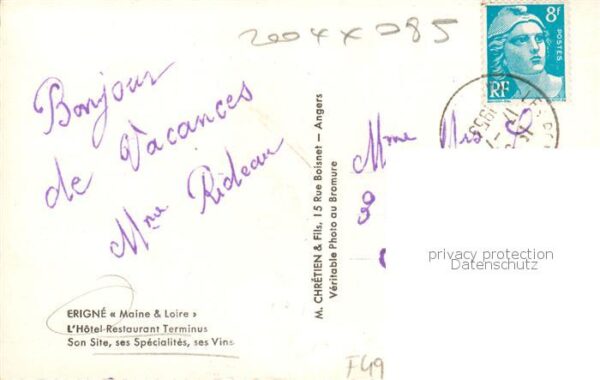 2004XX085
8F
POSTES
RF
1953
Bonjour
de Vacances
Mme Rideau
Mme
M. CHRÉTIEN & Fils, 15 Rue Boisnet — Angers
Véritable Photo au Bromure
privacy protection
Datenschutz
ERIGNÉ « Maine & Loire »
L'Hôtel-Restaurant Terminus
Son Site, ses Spécialités, ses Vins
F49